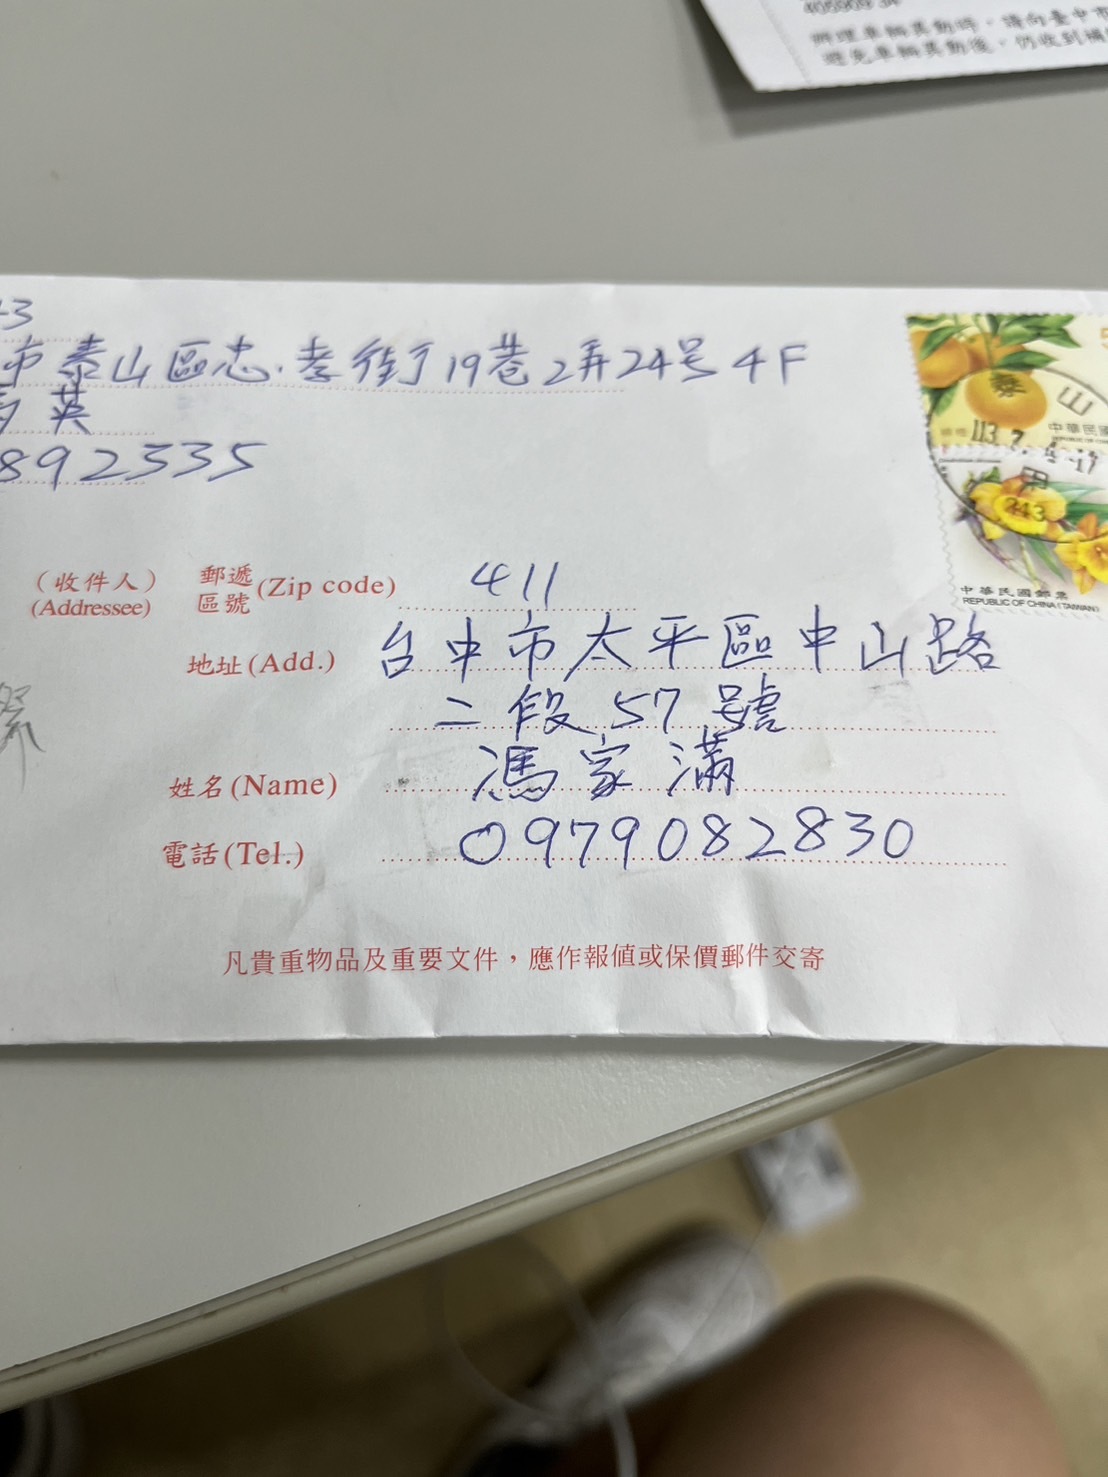 405909 34
辦理車輛異動時,請向臺中市
避免車輛異動後,仍收到補
-3
市泰山區忠孝街19巷2弄24号4F
英
892335
中華民國
113.7.
243
中華民國郵票
REPUBLIC OF CHINA (TAIWAN)
(收件人) 郵遞區號 (Zip code) 411
(Addressee)
地址(Add.) 台中市太平區中山路
二段57號
姓名(Name) 馮家滿
電話(Tel.) 0979082830
凡貴重物品及重要文件,應作報值或保價郵件交寄